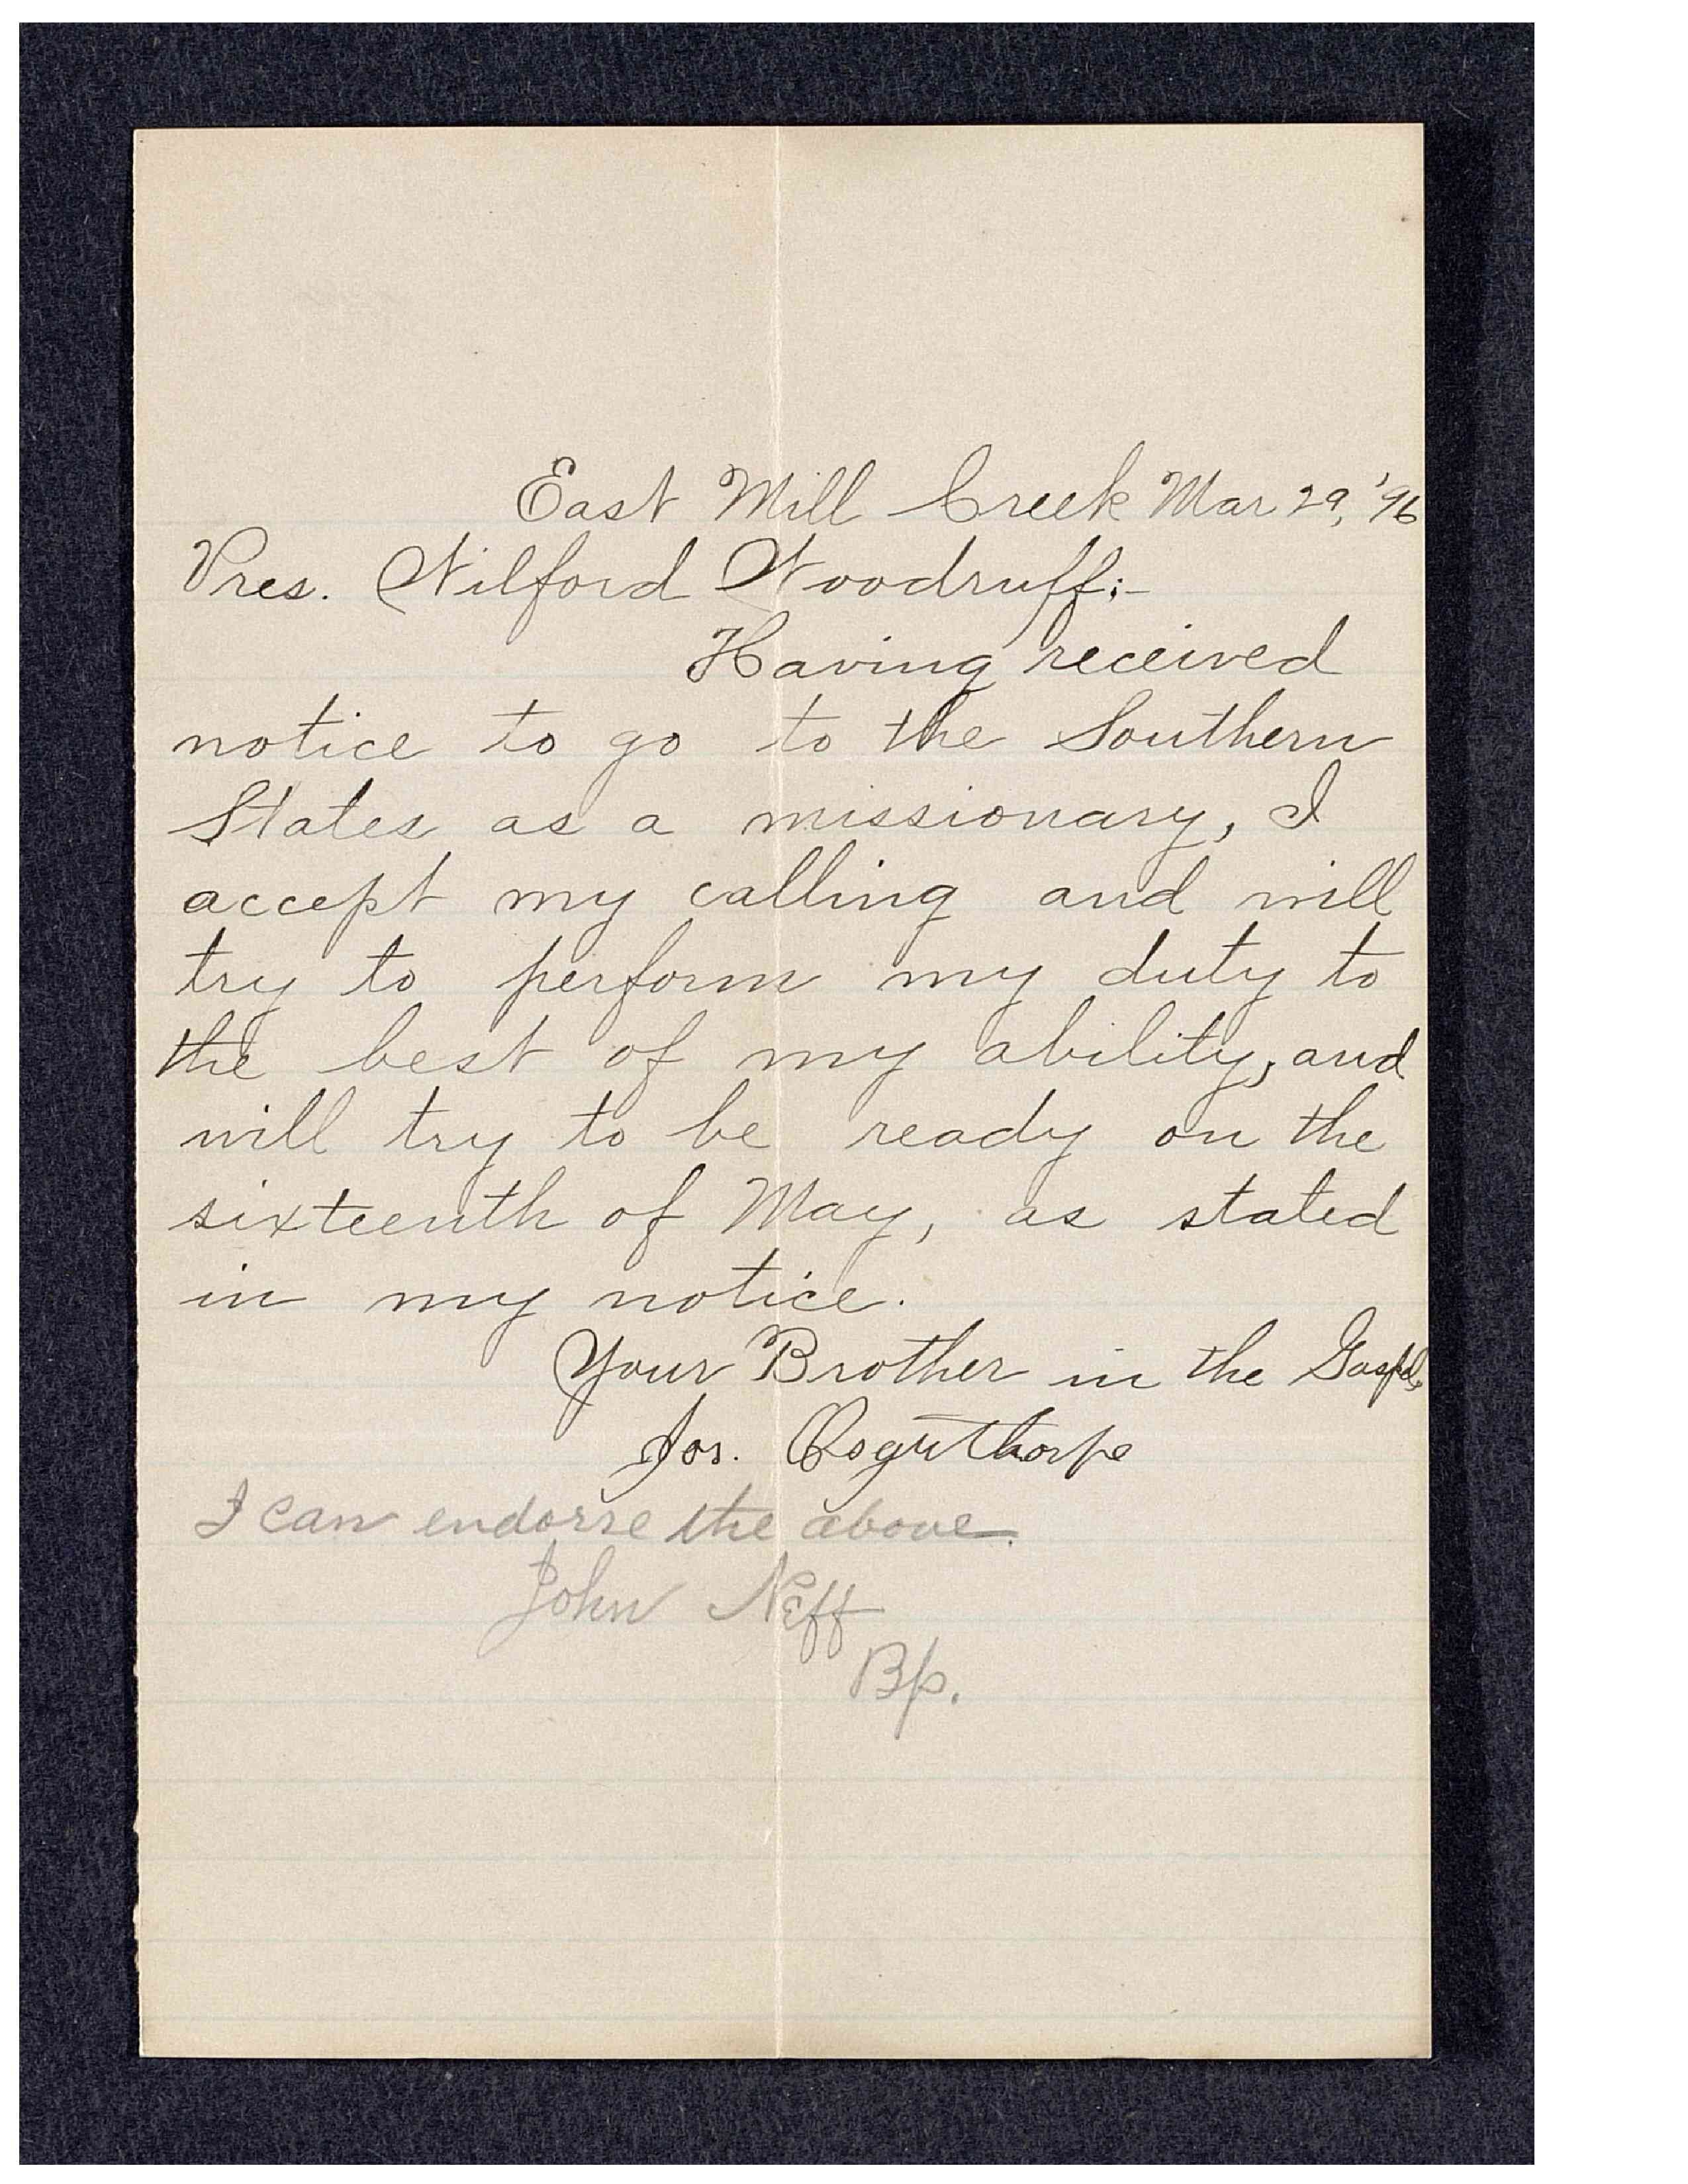 East Mill Creek Mar 29, '96
Pres. Wilford Woodruff:-
Having received
notice to go to the Southern
States as a missionary, I
accept my calling and will
try to perform my duty to
the best of my ability, and
will try to be ready on the
sixteenth of May, as stated
in my notice.
Your Brother in the Gospel,
Jos. Osguthorpe
I can endorse the above.
John Neff
Bp.